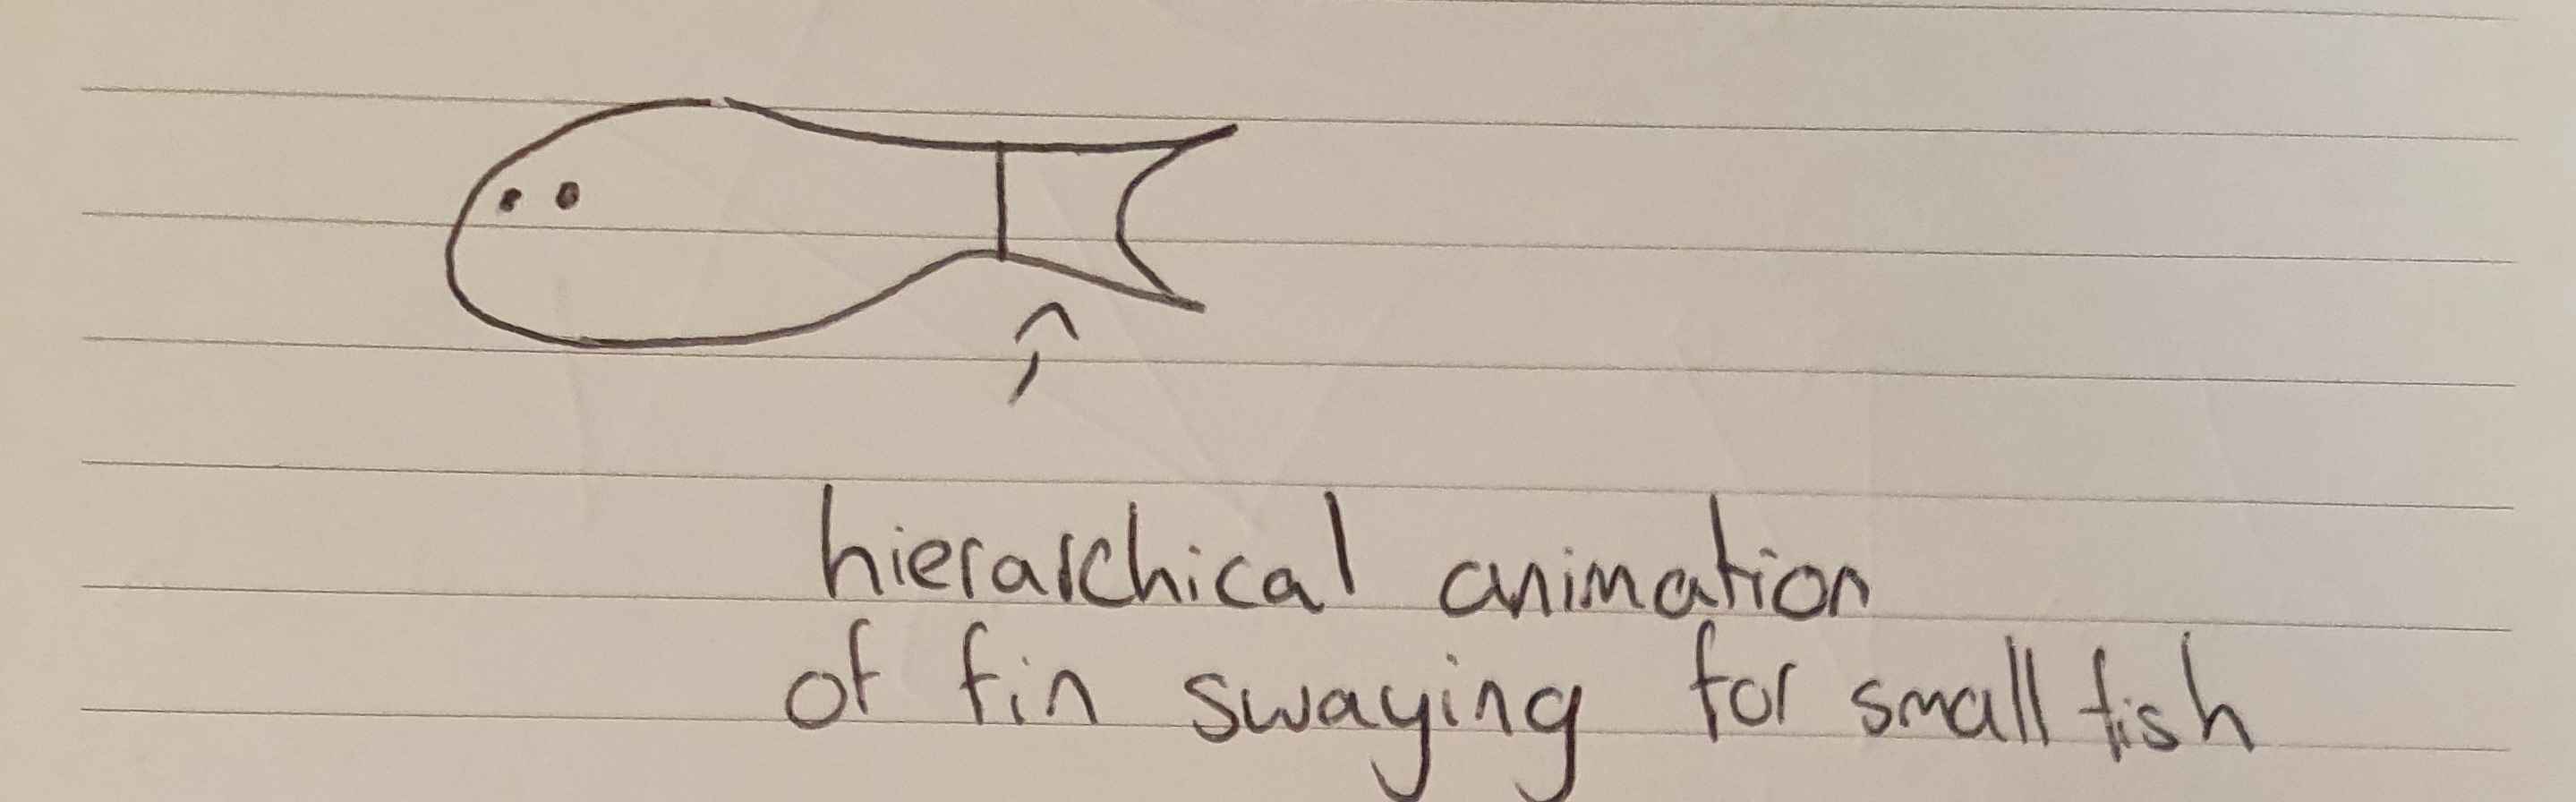 hierarchical animation
of fin swaying for small fish